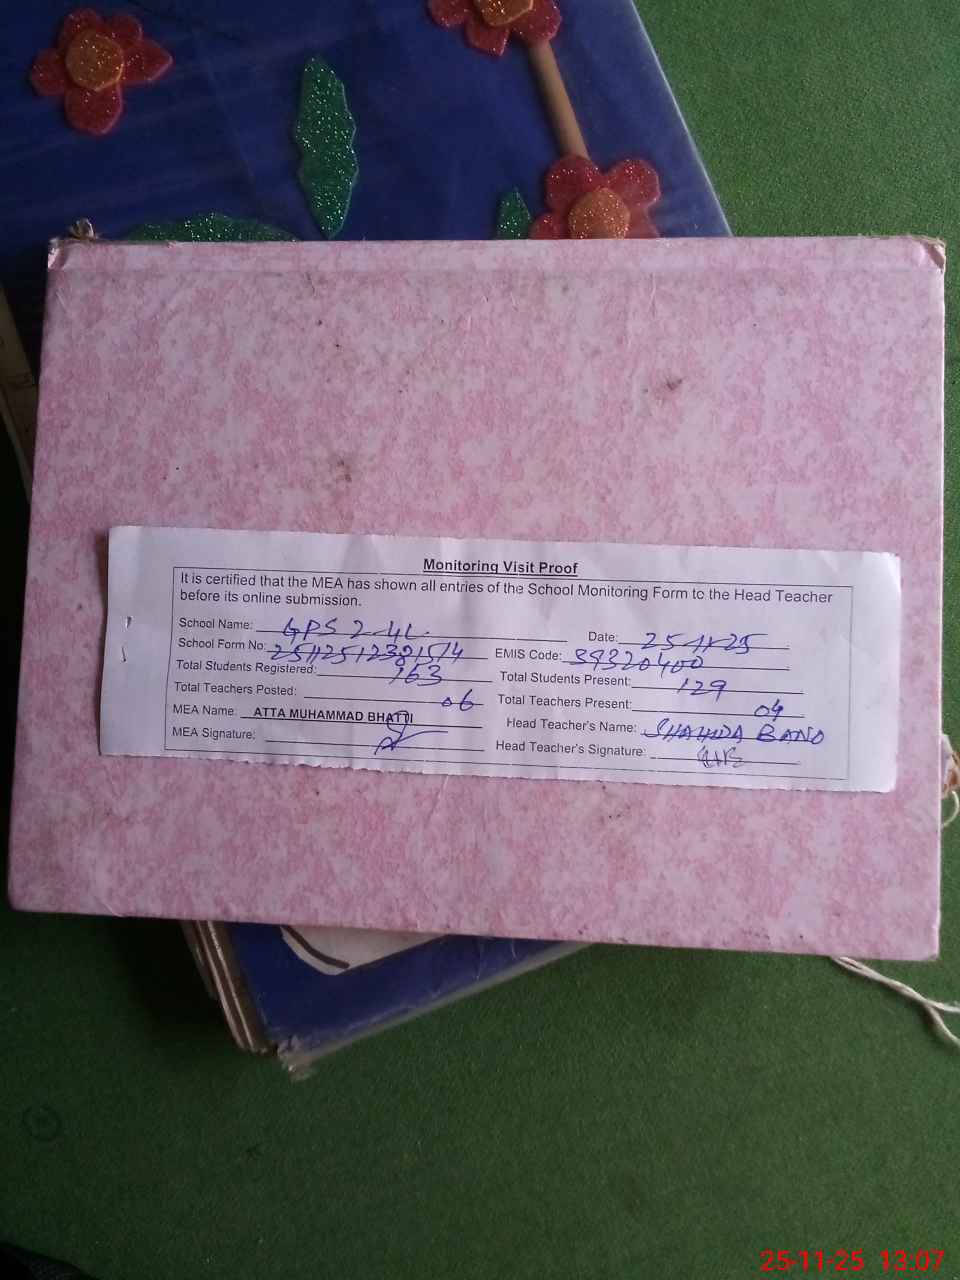 Monitoring Visit Proof
It is certified that the MEA has shown all entries of the School Monitoring Form to the Head Teacher
before its online submission.
School Name: GPS 2-4L Date: 25-11-25
School Form No: EMIS Code: 39320400
Total Students Registered: 163 Total Students Present: 129
Total Teachers Posted: 06 Total Teachers Present: 04
MEA Name: ATTA MUHAMMAD BHATTI Head Teacher's Name: BANO
MEA Signature: Head Teacher's Signature:
25-11-25 13:07